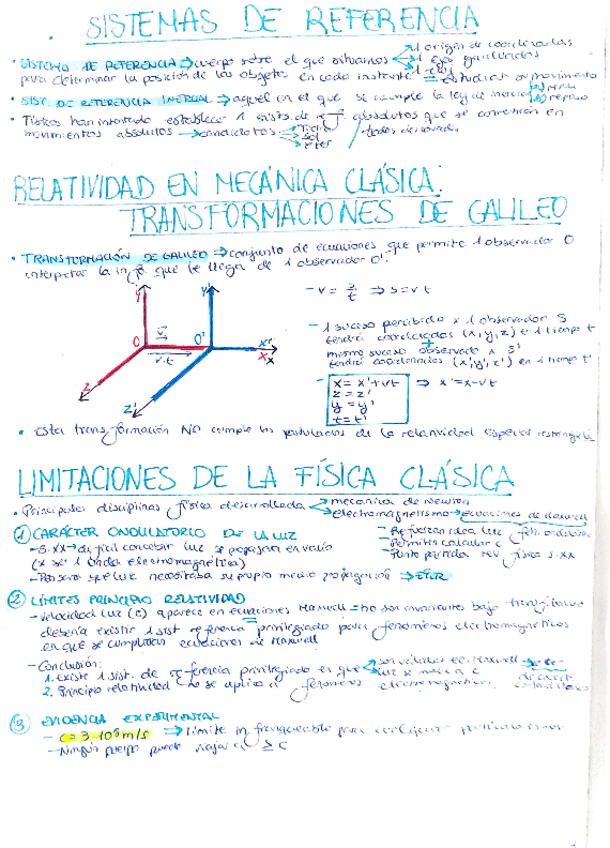 SISTEMAS DE REFERENCIA
• SISTEMA DE REFERENCIA → cuerpo sobre el que situamos 1 origen de coordenadas
1 eje graduados
1 reloj
para determinar la posición de los objetos en cada instante = estudiar movimiento
• SIST. DE REFERENCIA INERCIAL → aquel en el que se cumple la ley de inercia
reposo
• Físicos han intentado establecer 1 sist. de ref absolutos que se convertirán en
movimientos absolutos → candidatos → Tierra
Sol
éter
RELATIVIDAD EN MECÁNICA CLÁSICA:
TRANSFORMACIONES DE GALILEO
• TRANSFORMACIÓN DE GALILEO → conjunto de ecuaciones que permite 1 observador O
interpretar la inf que le llega de 1 observador O'.
Y
Y'
O
v
O'
v·t
X'
X
x
Z
Z'
- v = s/t ⇒ s = v t
- 1 suceso percibido x 1 observador S
tendrá coordenadas (x,y,z) t 1 tiempo t
+
mismo suceso observado x S'
tendrá coordenadas (x',y',z') en 1 tiempo t'
- x = x' + vt ⇒ x' = x - vt
z = z'
y = y'
t = t'
• Esta transformación NO cumple los postulados de la relatividad especial
LIMITACIONES DE LA FÍSICA CLÁSICA
• Principales disciplinas física desarrollada mecánica de Newton
electromagnetismo → ecuaciones de Maxwell
① CARÁCTER ONDULATORIO DE LA LUZ
- S.XX → difícil concebir luz se propagan en vacío
(x ser 1 onda electromagnética)
- Pensaron que luz necesitaba su propio medio propagación → ÉTER
- Refuerzan idea luz
- Permiten calcular c
- Punto partida rev física S.XX
② LÍMITES PRINCIPIO RELATIVIDAD
- Velocidad luz (c) aparece en ecuaciones Maxwell = no son invariantes bajo
debería existir 1 sist referencia privilegiado para fenómenos electromagnéticos
en que se cumplieran ecuaciones de Maxwell
- Conclusión:
1. Existe 1 sist. de referencia privilegiado en que son válidas ec. Maxwell
luz se mueve a c
2. Principio relatividad no se aplica a fenómenos electromagnéticos
③ EVIDENCIA EXPERIMENTAL
- c = 3·10⁸ m/s → límite infranqueable para cualquier partícula
- Ningún cuerpo puede viajar a ≥ c